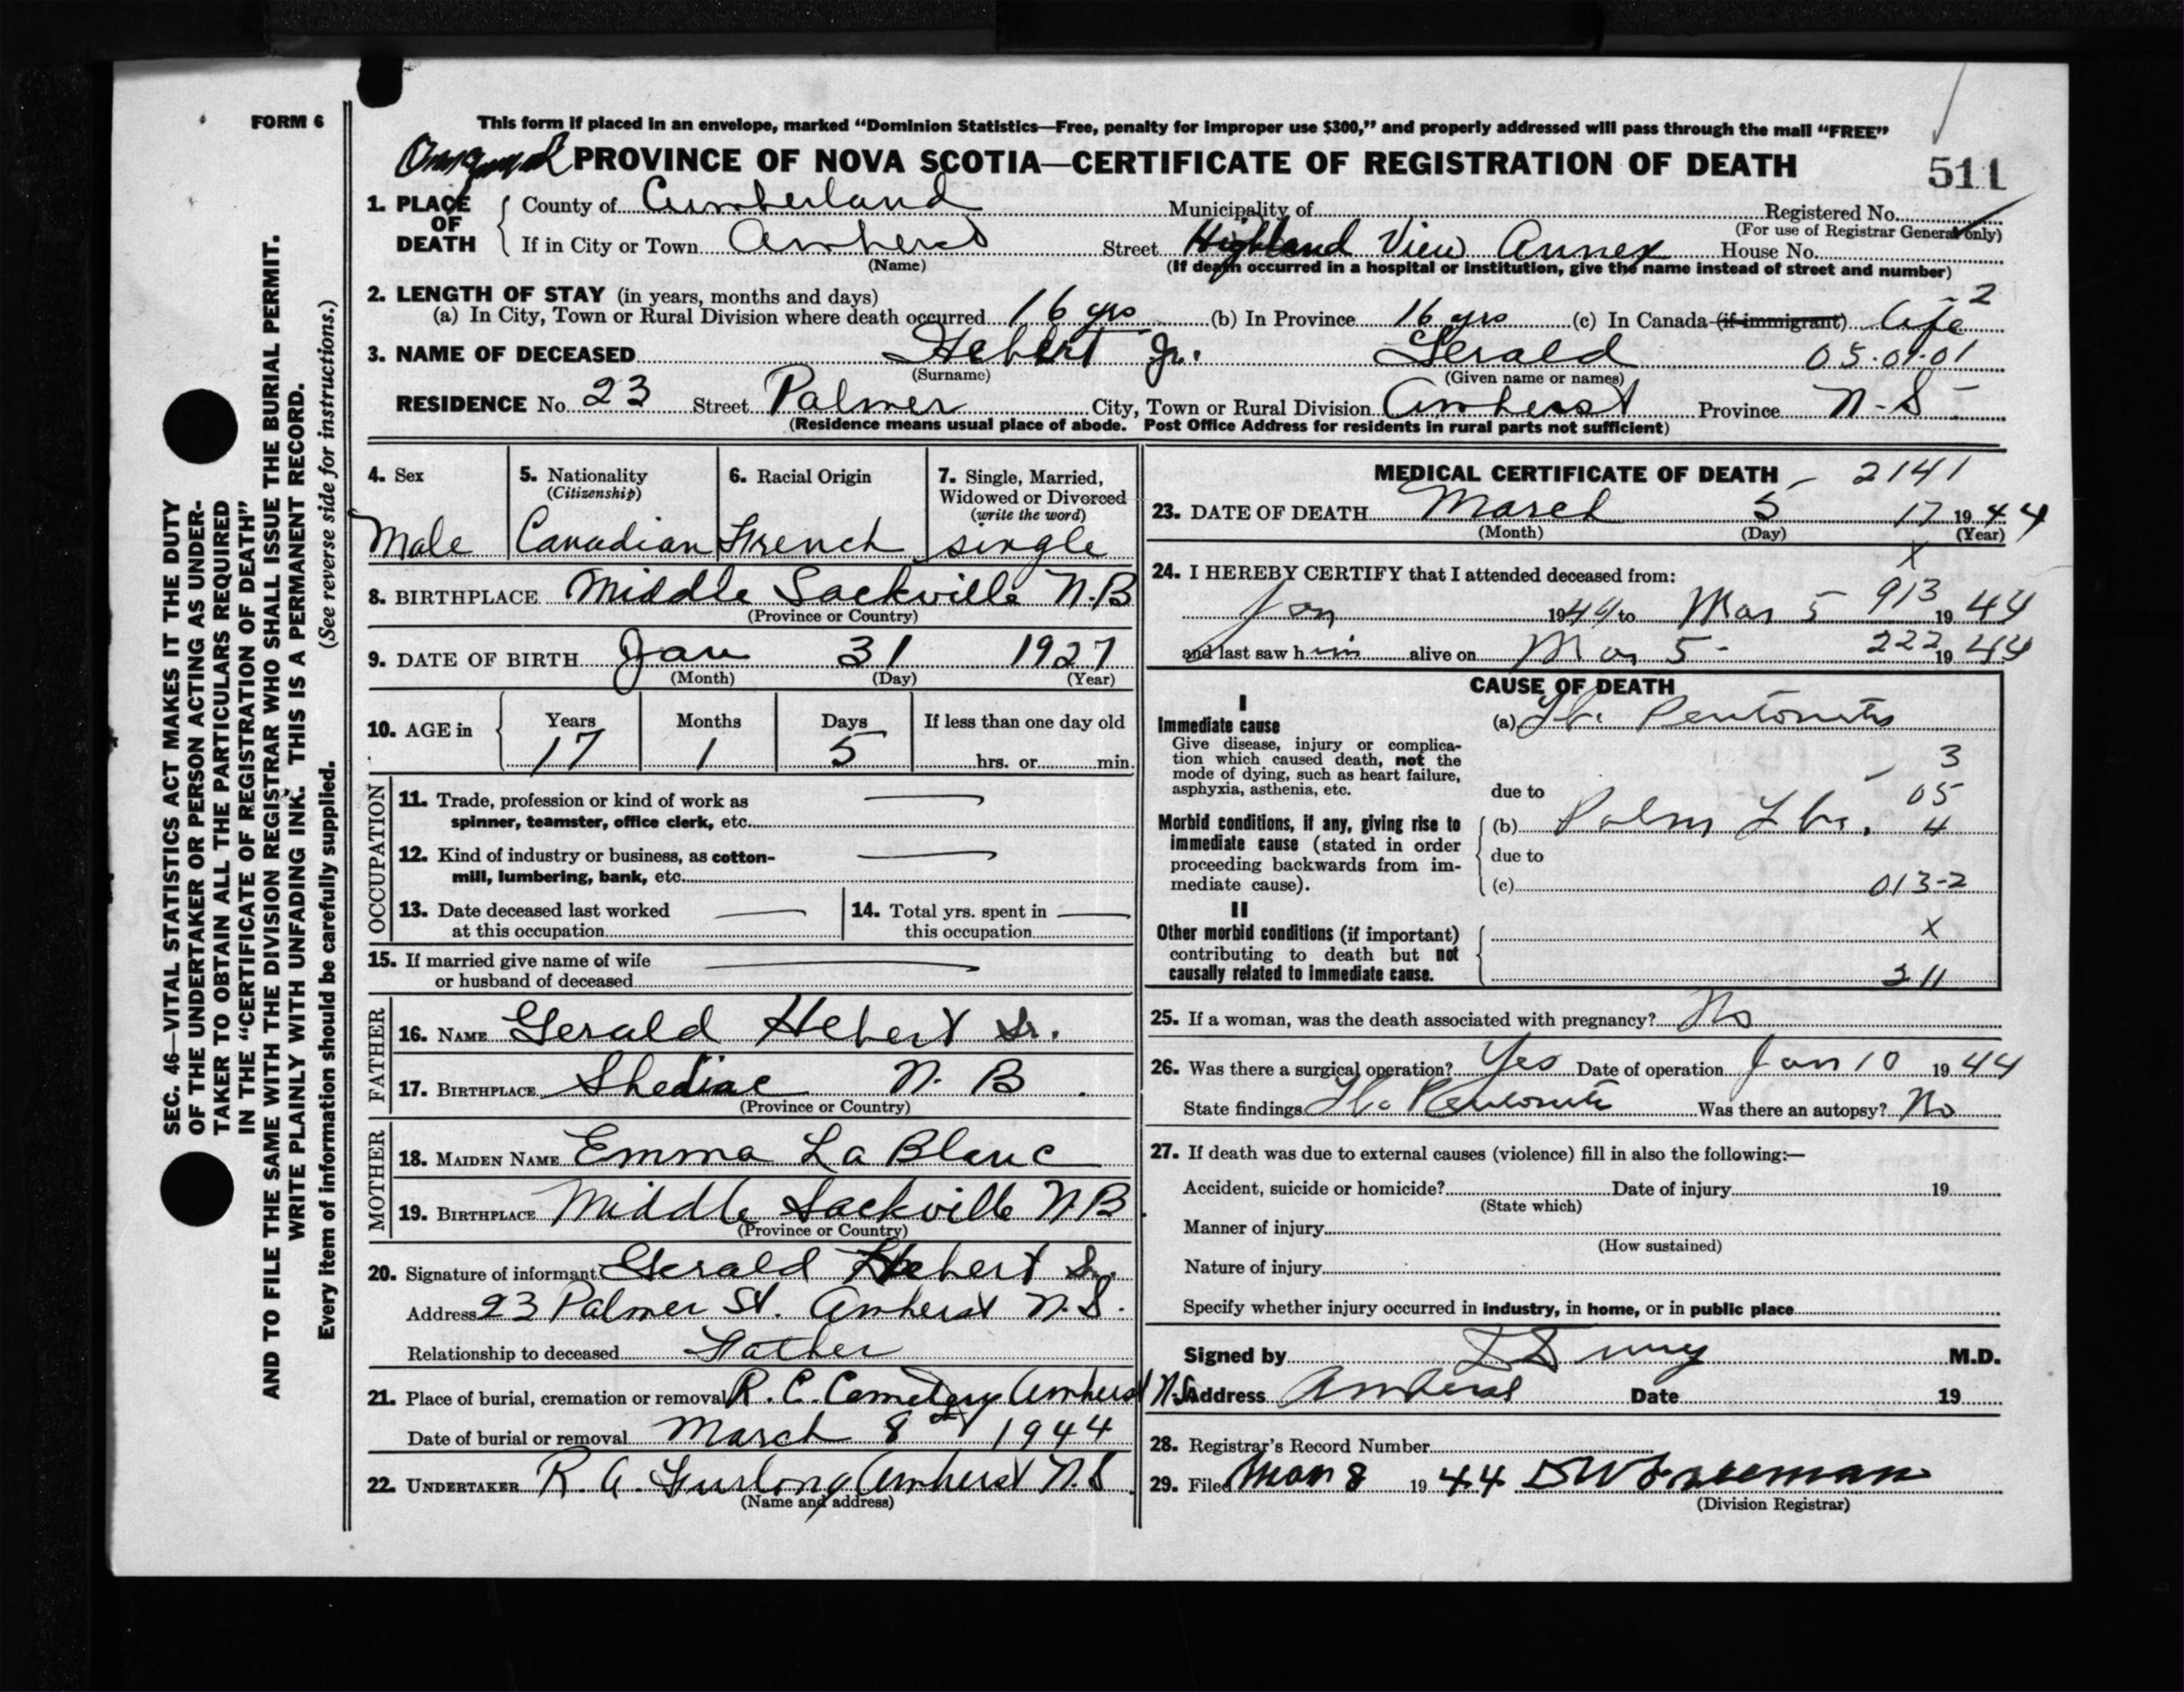 FORM 6
This form if placed in an envelope, marked “Dominion Statistics—Free, penalty for improper use $300,” and properly addressed will pass through the mail “FREE”
PROVINCE OF NOVA SCOTIA—CERTIFICATE OF REGISTRATION OF DEATH
511
1. PLACE OF DEATH
County of Cumberland Municipality of Registered No.
(For use of Registrar General only)
If in City or Town Amherst Street Highland View Annex House No.
(Name) (If death occurred in a hospital or institution, give the name instead of street and number)
2. LENGTH OF STAY (in years, months and days)
(a) In City, Town or Rural Division where death occurred 16 yrs (b) In Province 16 yrs (c) In Canada (if immigrant) life 2
3. NAME OF DECEASED Hebert Jr. Gerald 05.01.01
(Surname) (Given name or names)
RESIDENCE No. 23 Street Palmer City, Town or Rural Division Amherst Province N.S
(Residence means usual place of abode. Post Office Address for residents in rural parts not sufficient)
4. Sex
Male
5. Nationality
(Citizenship)
Canadian
6. Racial Origin
French
7. Single, Married,
Widowed or Divorced
(write the word)
single
8. BIRTHPLACE Middle Sackville N.B
(Province or Country)
9. DATE OF BIRTH Jan 31 1927
(Month) (Day) (Year)
10. AGE in Years Months Days If less than one day old
17 1 5 hrs. or min.
OCCUPATION
11. Trade, profession or kind of work as
spinner, teamster, office clerk, etc.
12. Kind of industry or business, as cotton-
mill, lumbering, bank, etc.
13. Date deceased last worked
at this occupation
14. Total yrs. spent in
this occupation
15. If married give name of wife
or husband of deceased
FATHER
16. NAME Gerald Hebert Sr.
17. BIRTHPLACE Shediac N. B.
(Province or Country)
MOTHER
18. MAIDEN NAME Emma La Blanc
19. BIRTHPLACE Middle Sackville N.B.
(Province or Country)
20. Signature of informant Gerald Hebert Sr.
Address 23 Palmer St. Amherst N.S.
Relationship to deceased Father
21. Place of burial, cremation or removal R. C. Cemetery Amherst N.S
Date of burial or removal March 8 1944
22. UNDERTAKER R. A. Furlong Amherst N.S
(Name and address)
MEDICAL CERTIFICATE OF DEATH – 2141
23. DATE OF DEATH March 5 17 1944
(Month) (Day) (Year)
X
24. I HEREBY CERTIFY that I attended deceased from:
Jan 1944 to Mar 5 913 1944
and last saw him alive on Mar 5 - 222 1944
CAUSE OF DEATH
I
Immediate cause
Give disease, injury or complica-
tion which caused death, not the
mode of dying, such as heart failure,
asphyxia, asthenia, etc.
(a) Tbc Peritonitis
3
due to 05
Morbid conditions, if any, giving rise to
immediate cause (stated in order
proceeding backwards from im-
mediate cause).
(b) Pulm Tbc. 4
due to
(c) 013-2
II
Other morbid conditions (if important)
contributing to death but not
causally related to immediate cause.
X
211
25. If a woman, was the death associated with pregnancy? No
26. Was there a surgical operation? Yes Date of operation Jan 10 1944
State findings Tbc Peritonitis Was there an autopsy? No
27. If death was due to external causes (violence) fill in also the following:—
Accident, suicide or homicide? Date of injury 19
(State which)
Manner of injury
(How sustained)
Nature of injury
Specify whether injury occurred in industry, in home, or in public place
Signed by M.D.
Address Amherst Date 19
28. Registrar's Record Number
29. Filed Mar 8 1944
(Division Registrar)
SEC. 46—VITAL STATISTICS ACT MAKES IT THE DUTY
OF THE UNDERTAKER OR PERSON ACTING AS UNDER-
TAKER TO OBTAIN ALL THE PARTICULARS REQUIRED
IN THE “CERTIFICATE OF REGISTRATION OF DEATH”
AND TO FILE THE SAME WITH THE DIVISION REGISTRAR WHO SHALL ISSUE THE BURIAL PERMIT.
WRITE PLAINLY WITH UNFADING INK. THIS IS A PERMANENT RECORD.
Every item of information should be carefully supplied. (See reverse side for instructions.)